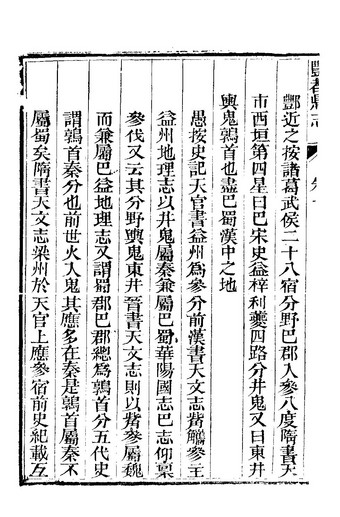 酆都縣志
卷一
酆近之按諸葛武侯二十八宿分野巴郡入參八度隋書天
市西垣第四星曰巴宋史益梓利夔四路分井鬼又曰東井
輿鬼鶉首也盡巴蜀漢中之地
愚按史記天官書益州爲參分前漢書天文志觜觿參主
益州地理志以井鬼屬秦兼屬巴蜀華陽國志巴志仰稟
參伐又云其分野輿鬼東井晉書天文志則以觜參屬魏
而兼屬巴益地理志又謂蜀郡巴郡總爲鶉首分五代史
謂鶉首秦分也前世火入鬼其應多在秦是鶉首屬秦不
屬蜀矣隋書天文志梁州於天官上應參宿前史紀載互